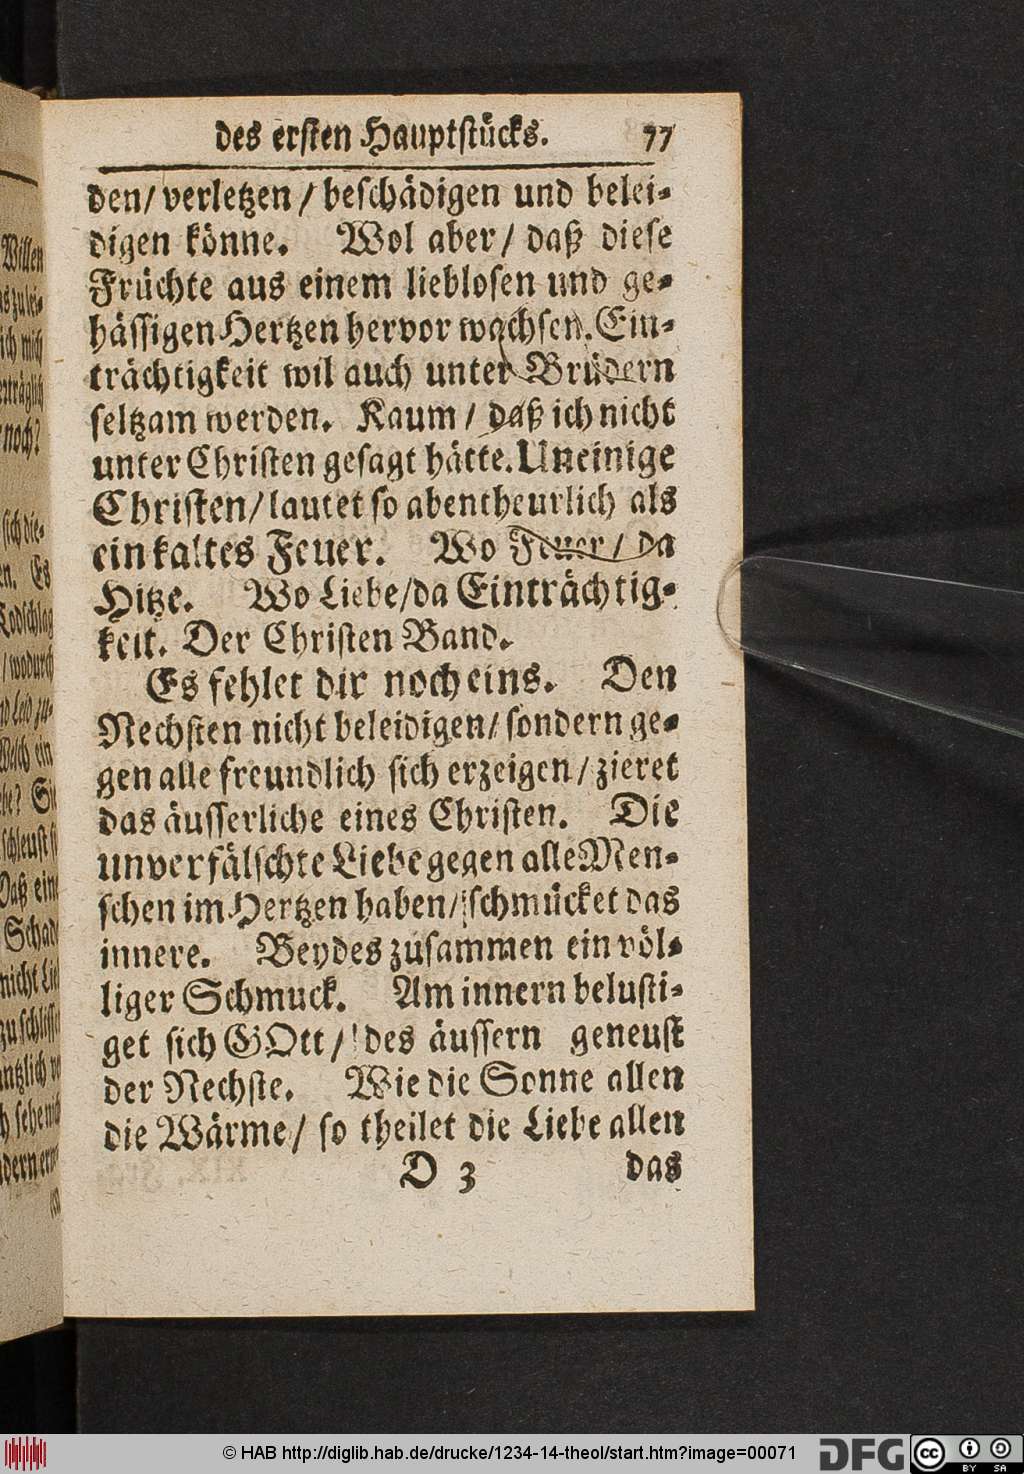 des ersten Hauptstücks. 77
den/ verletzen / beschädigen und belei-
digen könne. Wol aber / daß diese
Früchte aus einem lieblosen und ge-
hässigen Hertzen hervor wachsen. Ein-
trächtigkeit wil auch unter Brüdern
seltzam werden. Kaum / daß ich nicht
unter Christen gesagt hätte. Uneinige
Christen/ lautet so abentheurlich als
ein kaltes Feuer. Wo Feuer / da
Hitze. Wo Liebe/da Einträchtig-
keit. Der Christen Band.
Es fehlet dir noch eins. Den
Nechsten nicht beleidigen/ sondern ge-
gen alle freundlich sich erzeigen / zieret
das äusserliche eines Christen. Die
unverfälschte Liebe gegen alle Men-
schen im Hertzen haben/ schmücket das
innere. Beydes zusammen ein völ-
liger Schmuck. Am innern belusti-
get sich GOtt / des äussern geneust
der Nechste. Wie die Sonne allen
die Wärme/ so theilet die Liebe allen
D 3 das
Willen
ich mich
noch?
sich die-
en. Es
Todschlag
/ wodurch
nd Leid zu-
Welch ein
Daß eine
nicht Lie
© HAB http://diglib.hab.de/drucke/1234-14-theol/start.htm?image=00071
DFG
cc BY SA